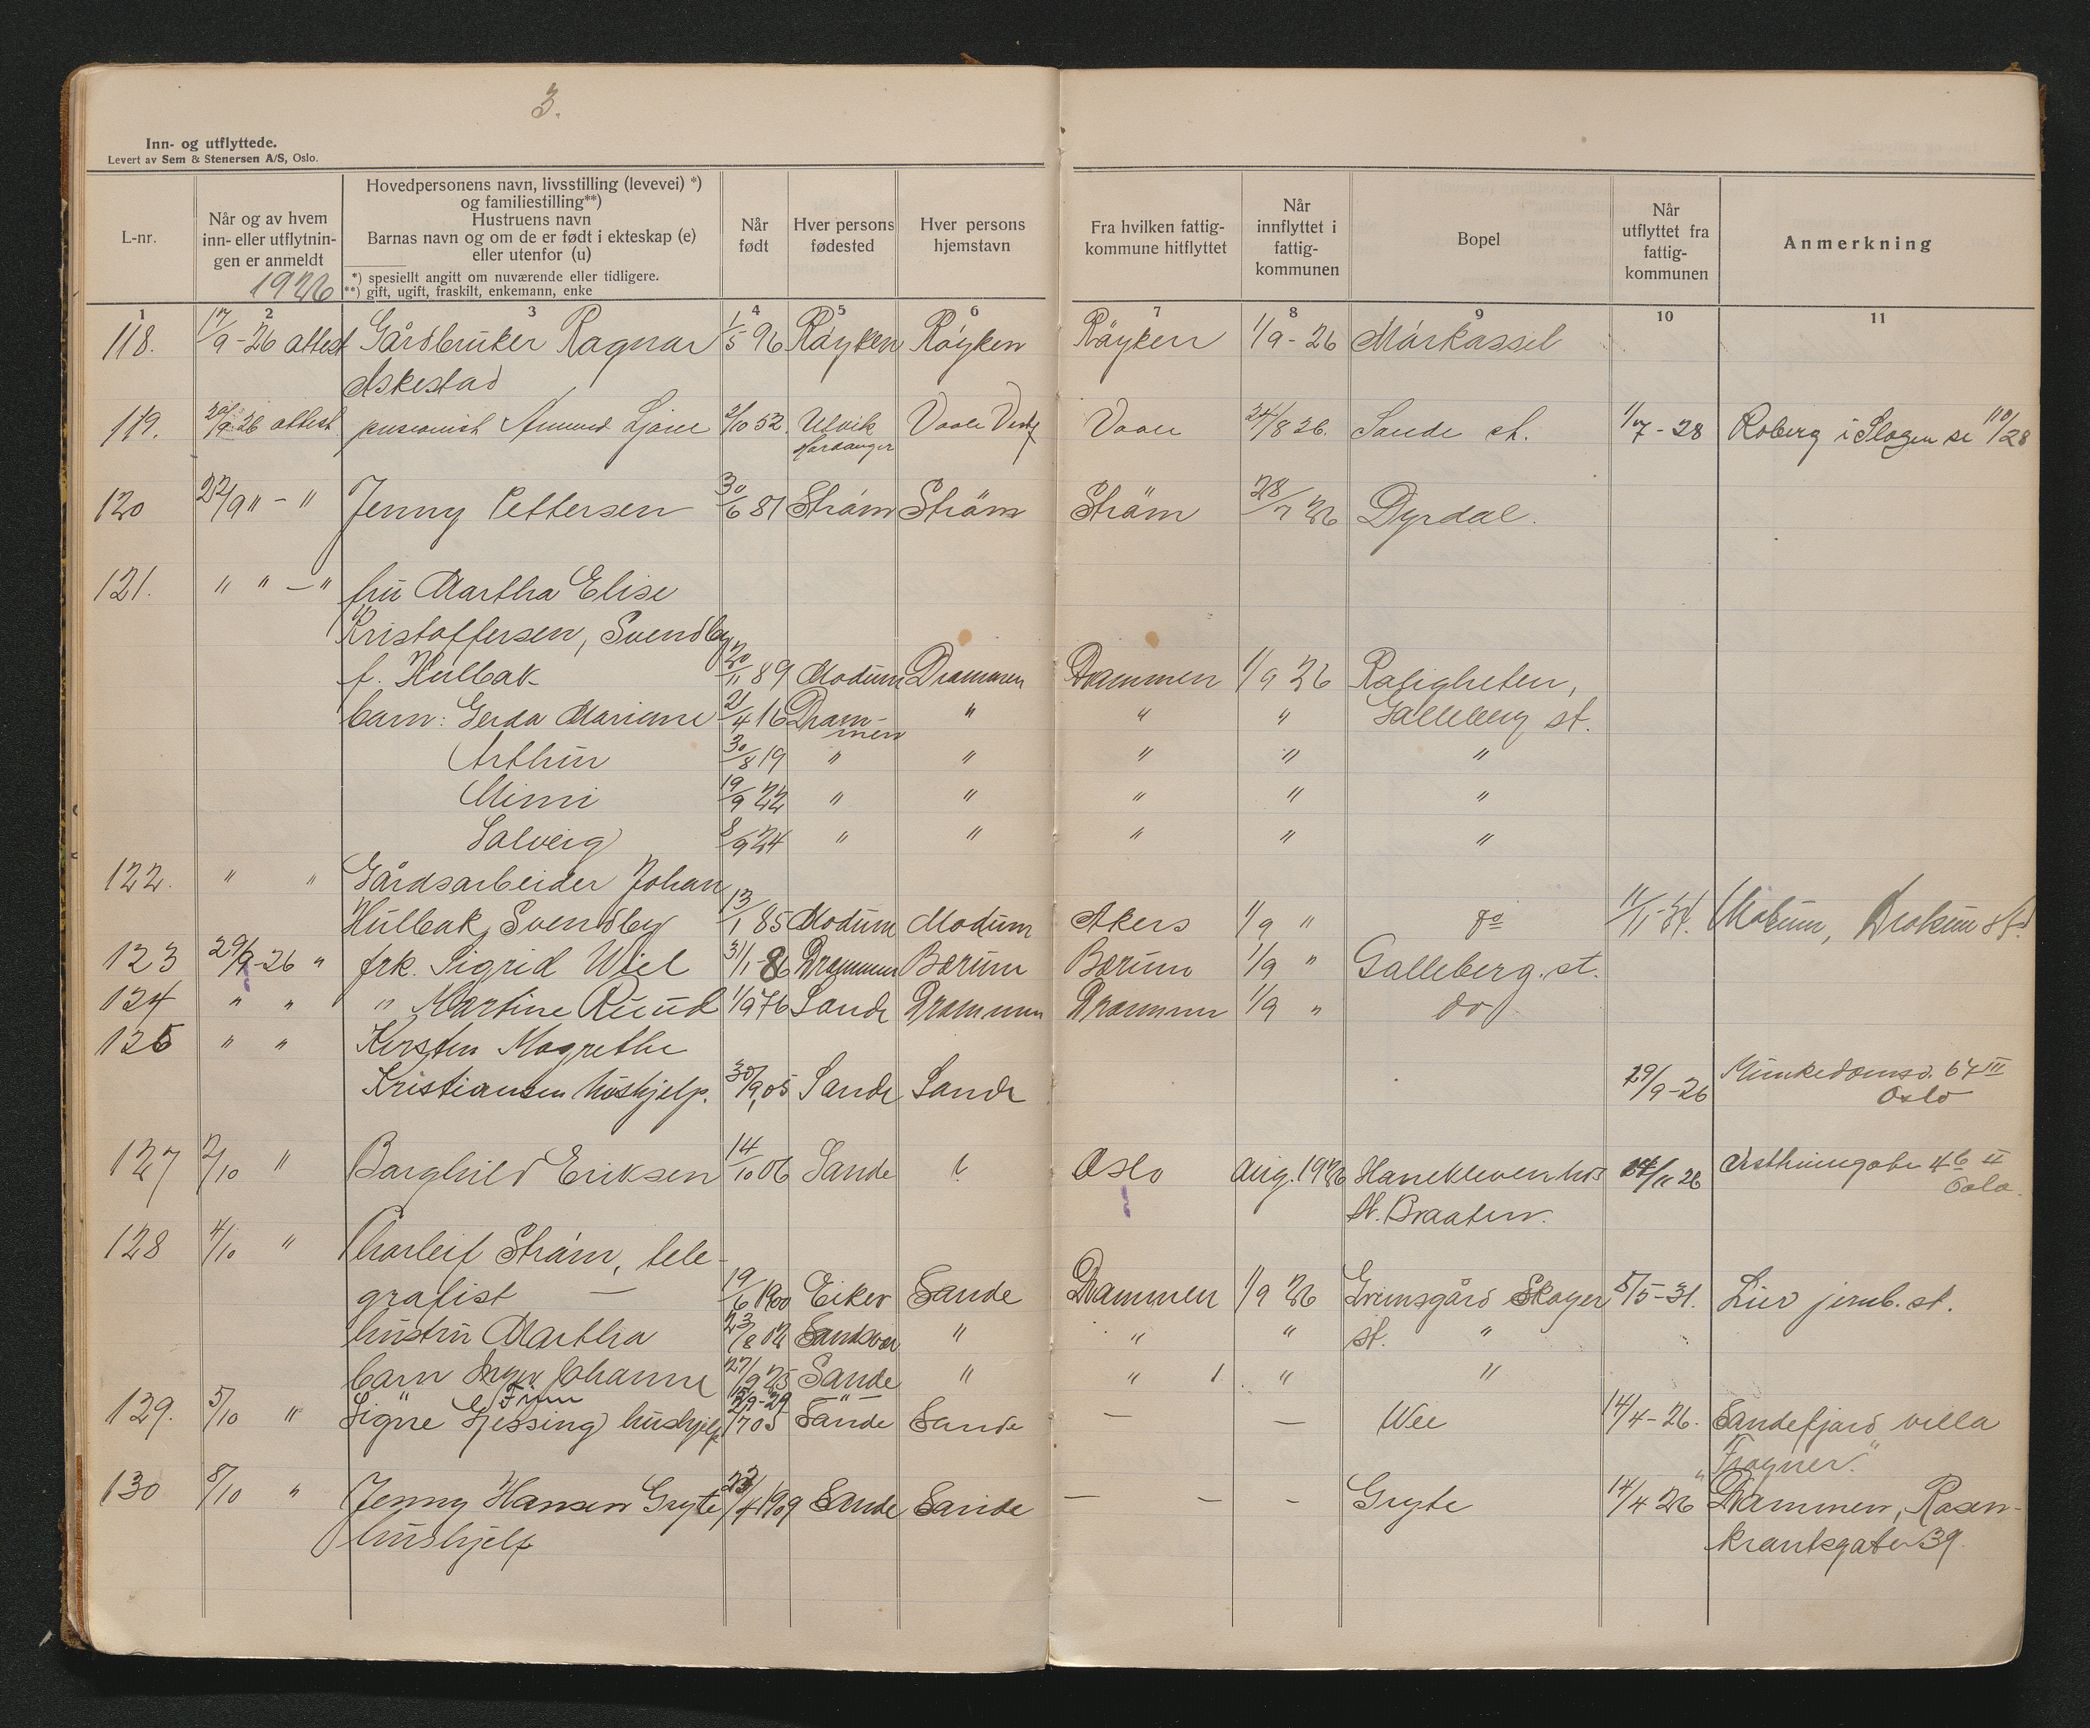 3.
Inn- og utflyttede.
Levert av Sem & Stenersen A/S, Oslo.
L-nr.
Når og av hvem inn- eller utflytnin-gen er anmeldt
1926
Hovedpersonens navn, livsstilling (levevei) *)
og familiestilling**)
Hustruens navn
Barnas navn og om de er født i ekteskap (e)
eller utenfor (u)
*) spesiellt angitt om nuværende eller tidligere.
**) gift, ugift, fraskilt, enkemann, enke
Når født
Hver persons fødested
Hver persons hjemstavn
Fra hvilken fattig-kommune hitflyttet
Når innflyttet i fattig-kommunen
Bopel
Når utflyttet fra fattig-kommunen
Anmerkning
1 2 3 4 5 6 7 8 9 10 11
118. 17/9-26 attest Gårdbruker Ragnar 1/5 96 Røyken Røyken Røyken 1/9-26 Mørkassel
Askestad
119. 20/9-26 attest pensionist Amund Ljone 2/10 52. Ulvik Vaale Vaale 24/8 26. Sande st. 1/7-28 Roberg i Slagen se 110/28
Hardanger
120 22/9 " - " Jenny Pettersen 30/6 81 Strøm Strøm Strøm 28/7 26 Dyrdal.
121. " " - " fru Martha Elise
Kristoffersen, Svendby
f. Hulbak 20/11 89 Modum Drammen Drammen 1/9 26 Roligheten,
barn: Gerda Marianne 21/4 16 Dram-men " " " Galleberg st.
Arthur 30/8 19 " " " " "
Mimi 19/9 22 " " " " "
Solveig 8/9 24 " " " " "
122. " " Gårdsarbeider Johan
Hulbak, Svendsby 13/1 85 Modum Modum Akers 1/9 " do 11/11-31. Modum, st.
123 29/9-26 " frk. Sigrid Wiel 31/1-86 Drammen Bærum Bærum 1/9 " Galleberg. st.
124 " " " Martine Ruud 1/9 76 Sande Drammen Drammen 1/9 " do
125 " " Kirsten Magrethe
Kristiansen hushjelp. 30/9,05 Sande Sande 29/9-26 Munkedamsv. 67 III
Oslo
127 2/10 " Borghild Eriksen 14/10 06 Sande ? Oslo Aug. 1926 Hanekleven hos 14/11 26 4b II
H. Braaten. Oslo.
128 4/10 " Thorleif Strøm, tele-
grafist — 19/6 1900 Eiker Sande Drammen 1/9 26 Grimsgård Skoger 5/5-31. Lier jernb. st.
hustru Martha 23/8 02 Sandsvær " " " st. "
barn Inger Johanne 27/9 25 Sande " " " "
" Finn 15/9-29 "
129. 5/10 " Signe Gjessing hushjelp 2/7 05 Sande Sande — — Wee 14/4-26. Sandefjord villa
"Frogner."
130 8/10 " Jenny Hansen Gryte 23/4 1909 Sande Sande — — — Gryte 14/4 26 Drammen, Rosen-
hushjelp krantsgaten 39.